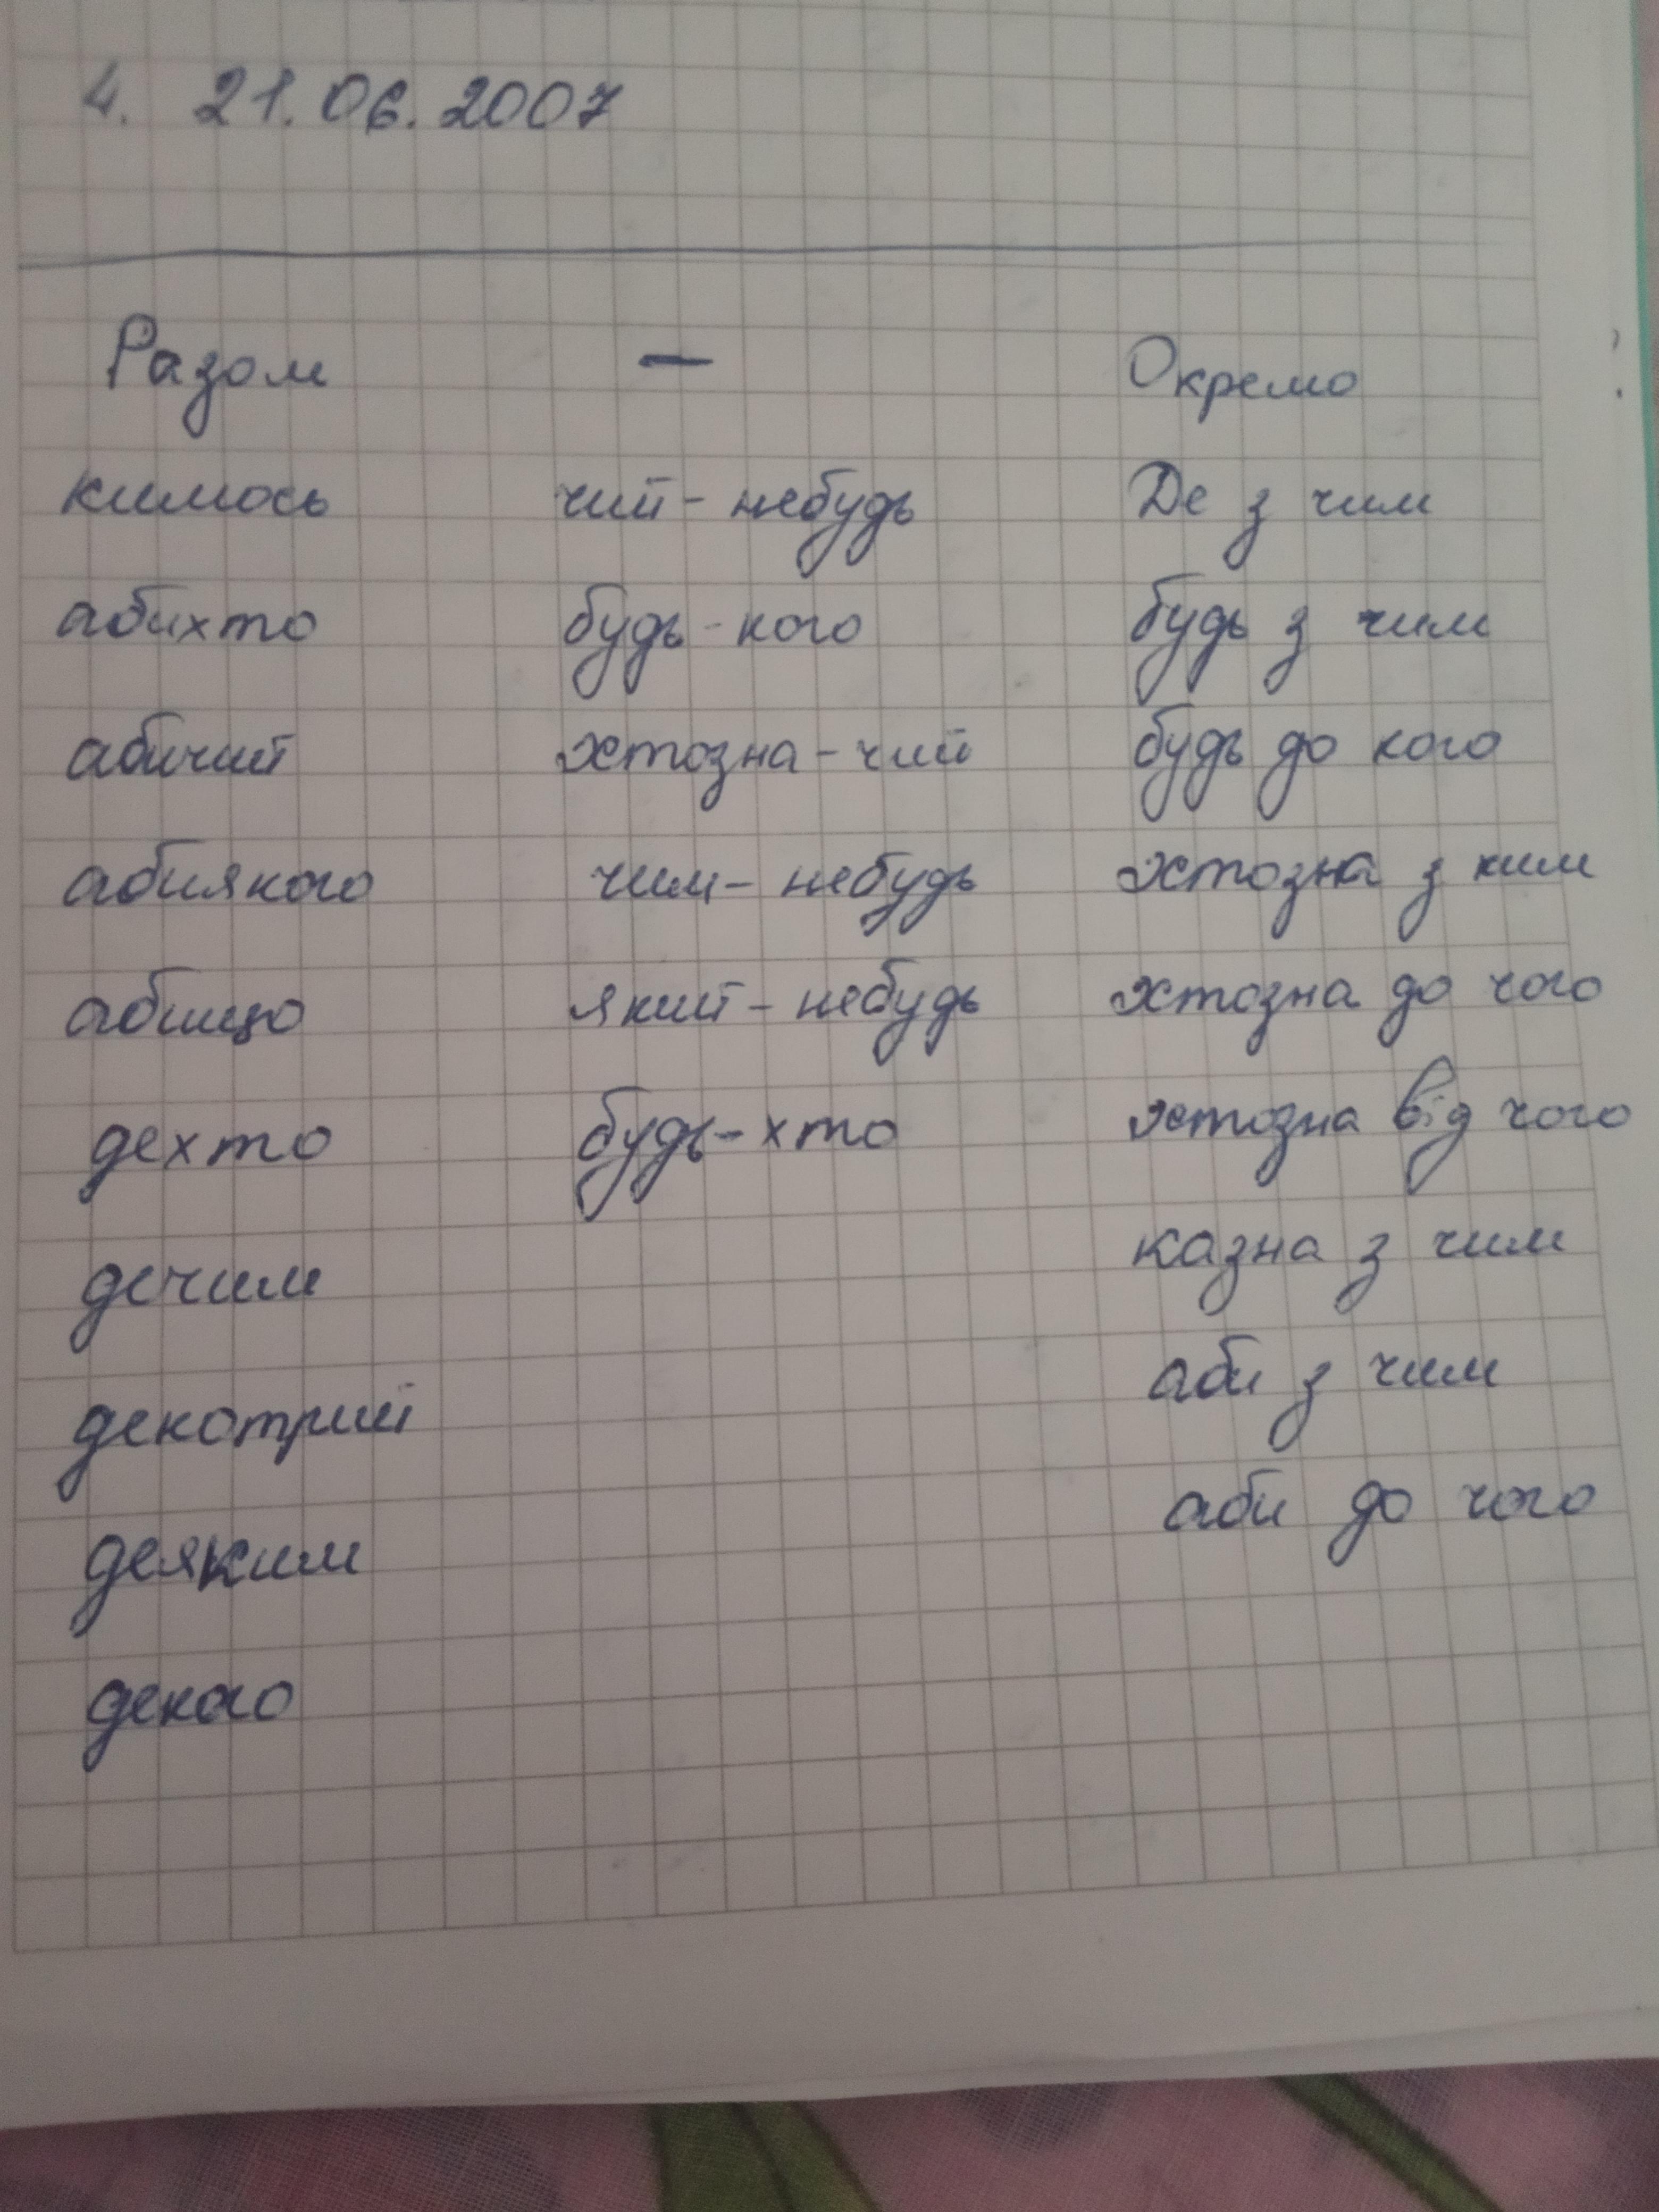 4. 21.06.2007
Разом — Окремо
кимось чий-небудь Де з чим
абихто будь-кого будь з чим
абичий хтозна-чий будь до кого
абиякого чим-небудь хтозна з ким
абищо який-небудь хтозна до чого
дехто будь-хто хтозна від чого
дечим казна з чим
декотрий аби з чим
деяким аби до чого
декого